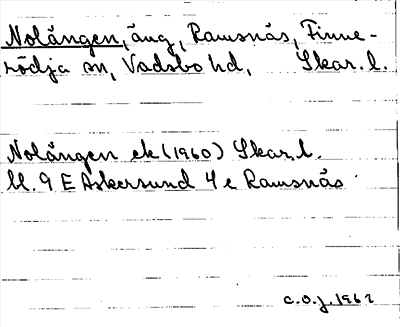 Nolängen, äng, Ramsnäs, Finne-
rödja sn, Vadsbo hd, Skar. l.
Nolängen ek (1960) Skar. l.
bl. 9 E Askersund 4 e Ramsnäs
C.O.J. 1962